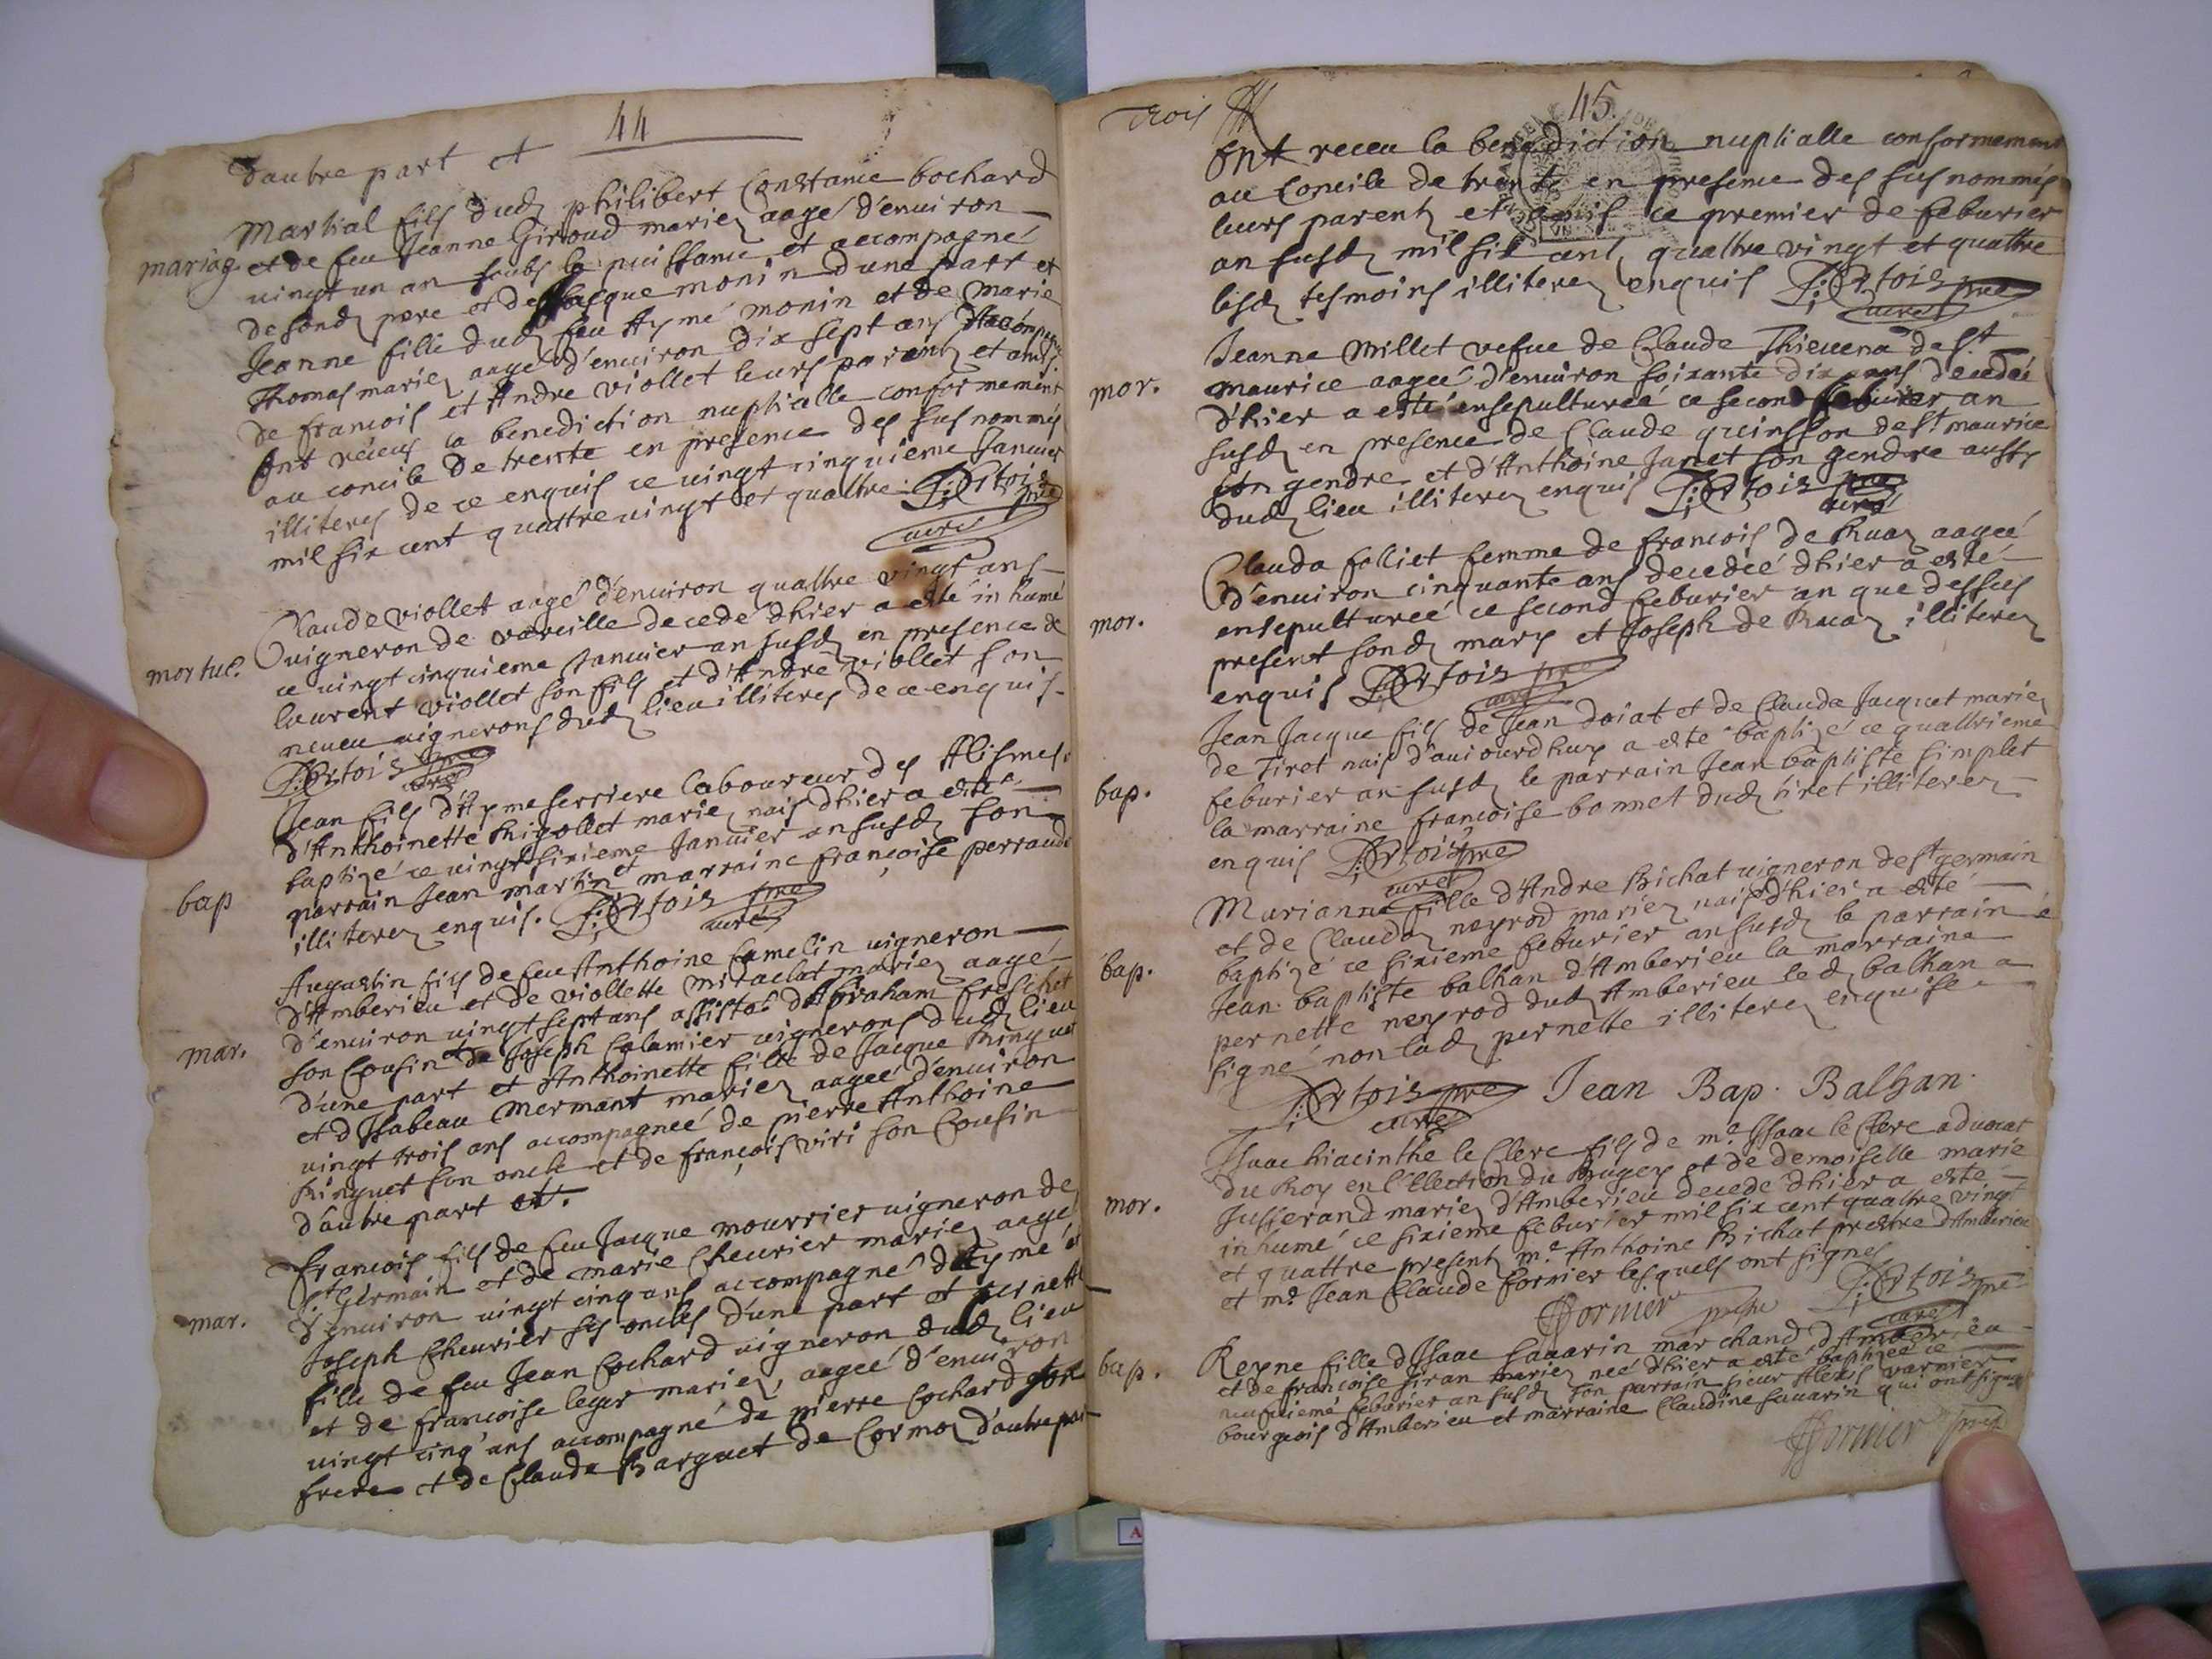 44
d'autre part et
Martial fils dud philibert Constance bochard
mariag. et de feu Jeanne Giroud mariez aagé d'environ
vingt un an soubs la puissance et accompagné
de sond pere et de Jacque monin d'une part et
Jeanne fille dud feu Aymé monin et de Marie
Thomas mariez aagé d'environ dix sept ans
de francois et Andre viollet leurs parentz et amis
ont receus la benediction nuptialle conformement
au concile de trente en presence des susnommés
illiteres de ce enquis ce vingt cinquieme Januier
mil six cent quattrevingt et quattre. Artois pre
curé
Claude viollet aagé d'environ quattre vingt ans
vigneron de vareille decedé dhier a esté inhumé
mortué. ce vingt cinquieme Januier an susd en presence de
laurent viollet son fils et d'Andre viollet son
neveu vignerons dud lieu illiteres de ce enquis
Artois pre
curé
Jean fils d'Ayme serriere laboureur des Alismes
d'Anthoinette Rigollet mariez nais dhier a esté
bap baptizé ce vingt sixieme Januier an susd son
parrain Jean martin et marraine françoise perraud
illiterez enquis. Artois pre
curé
Augustin fils de feu Anthoine Camelin vigneron
d'Amberieu et de viollette miraclet mariez aagé
d'environ vingt sept ans assisté d'Abraham freschet
mar. son Cousin et de Joseph Calamier vignerons dud lieu
d'une part et Anthoinette fille de Jacque Ringuet
et d'Isabeau mermant mariez aageé d'environ
vingt trois ans accompagneé de pierre Anthoine
Ringuet son oncle et de françois viri son Cousin
d'autre part et.
francois fils de feu Jacque mourrier vigneron de
St Germain et de marie Cheurier mariez aagé
mar. d'environ vingt cinq ans accompagné d'Aymé et
Joseph Cheurier ses oncles d'une part et pernette
fille de feu Jean Cochard vigneron dud lieu
et de francoise leger mariez, aageé d'environ
vingt cinq ans accompagné de pierre Cochard son
frere et de Claude Barguet de Cormoz d'autre par
trois
45.
ont receu la benediction nuptialle conformement
au Concile de trente en presence des susnommés
leurs parentz et amis ce premier de feburier
an susd mil six cent quattre vingt et quattre
lesd tesmoins illiterez enquis Artois pre
curé
Jeanne Millet vefue de Claude Thieuena de St
mor. maurice aageé d'environ soixante dix ans decedeé
d'hier a esté ensepultureé ce second feburier an
susd en presence de Claude quinsson de St maurice
son gendre et d'Anthoine Janet son gendre aussy
dud lieu illiterez enquis Artois pre
curé
Clauda folliet femme de francois de Ruaz aageé
d'environ cinquante ans decedeé dhier a esté
mor. ensepultureé ce second feburier an que dessus
present sond mary et Joseph de Ruaz illiterez
enquis Artois pre
curé
Jean Jacque fils de Jean Doiat et de Clauda Jacquet mariez
de Tiret nais d'auiourd huy a esté baptizé ce quattrieme
bap. feburier an susd le parrain Jean baptiste simplet
la marraine francoise bonnet dud tiret illiterez
enquis Artois pre
curé
Marianne fille d'Andre Richat vigneron de St germain
et de Clauda neyrod mariez nais d'hier a esté
bap. baptizé ce sixieme feburier an susd le parrain
Jean baptiste balhan d'Amberieu la marraine
pernette neyrod dud Amberieu led balhan a
signé non lad pernette illiterez enquise
Artois pre Jean Bap. Balhan.
curé
Isaac hiacinthe le Clerc fils de me Isaac le Clerc aduocat
du Roy en l'Election du Bugey et de demoiselle marie
mor. Jusserand mariez d'Amberieu decedé dhier a esté
inhumé ce sixieme feburier mil six cent quattre vingt
et quattre presentz me Anthoine Richat prestre d'Amberieu
et me Jean Claude fornier lesquels ont signes
fornier Artois pre
curé
Reyne fille d'Isaac sauarin marchand d'Amberieu
bap. et de francoise siran mariez neé dhier a esté baptizeé ce
neufuiemé feburier an susd son parrain sieur Alexis varnier
bourgeois d'Amberieu et marraine Claudine sauarin qui ont signé
fornier pre